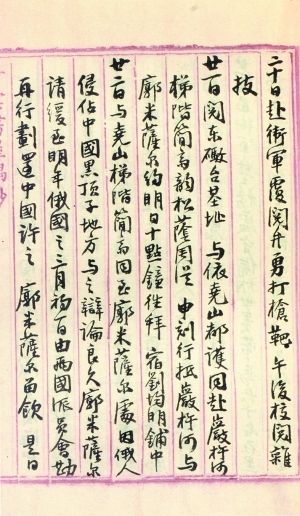 二十日赴衛軍覆閱弁勇打槍靶午後校閱雜
技
廿一日閱东礮台基地与依堯山都護同赴嚴杵河
梯階簡高韵松蔭同從申刻行抵嚴杵河与
廓米薩尔約明日十點鐘往拜宿劉均明舖中
廿二日与堯山梯階簡高同至廓米薩尔處因俄人
侵佔中國黑頂子地方与之辯論良久廓米薩尔
請緩至明年俄國之三月初一日由兩國派員會勘
再行劃還中國許之廓米薩尔留飲是日